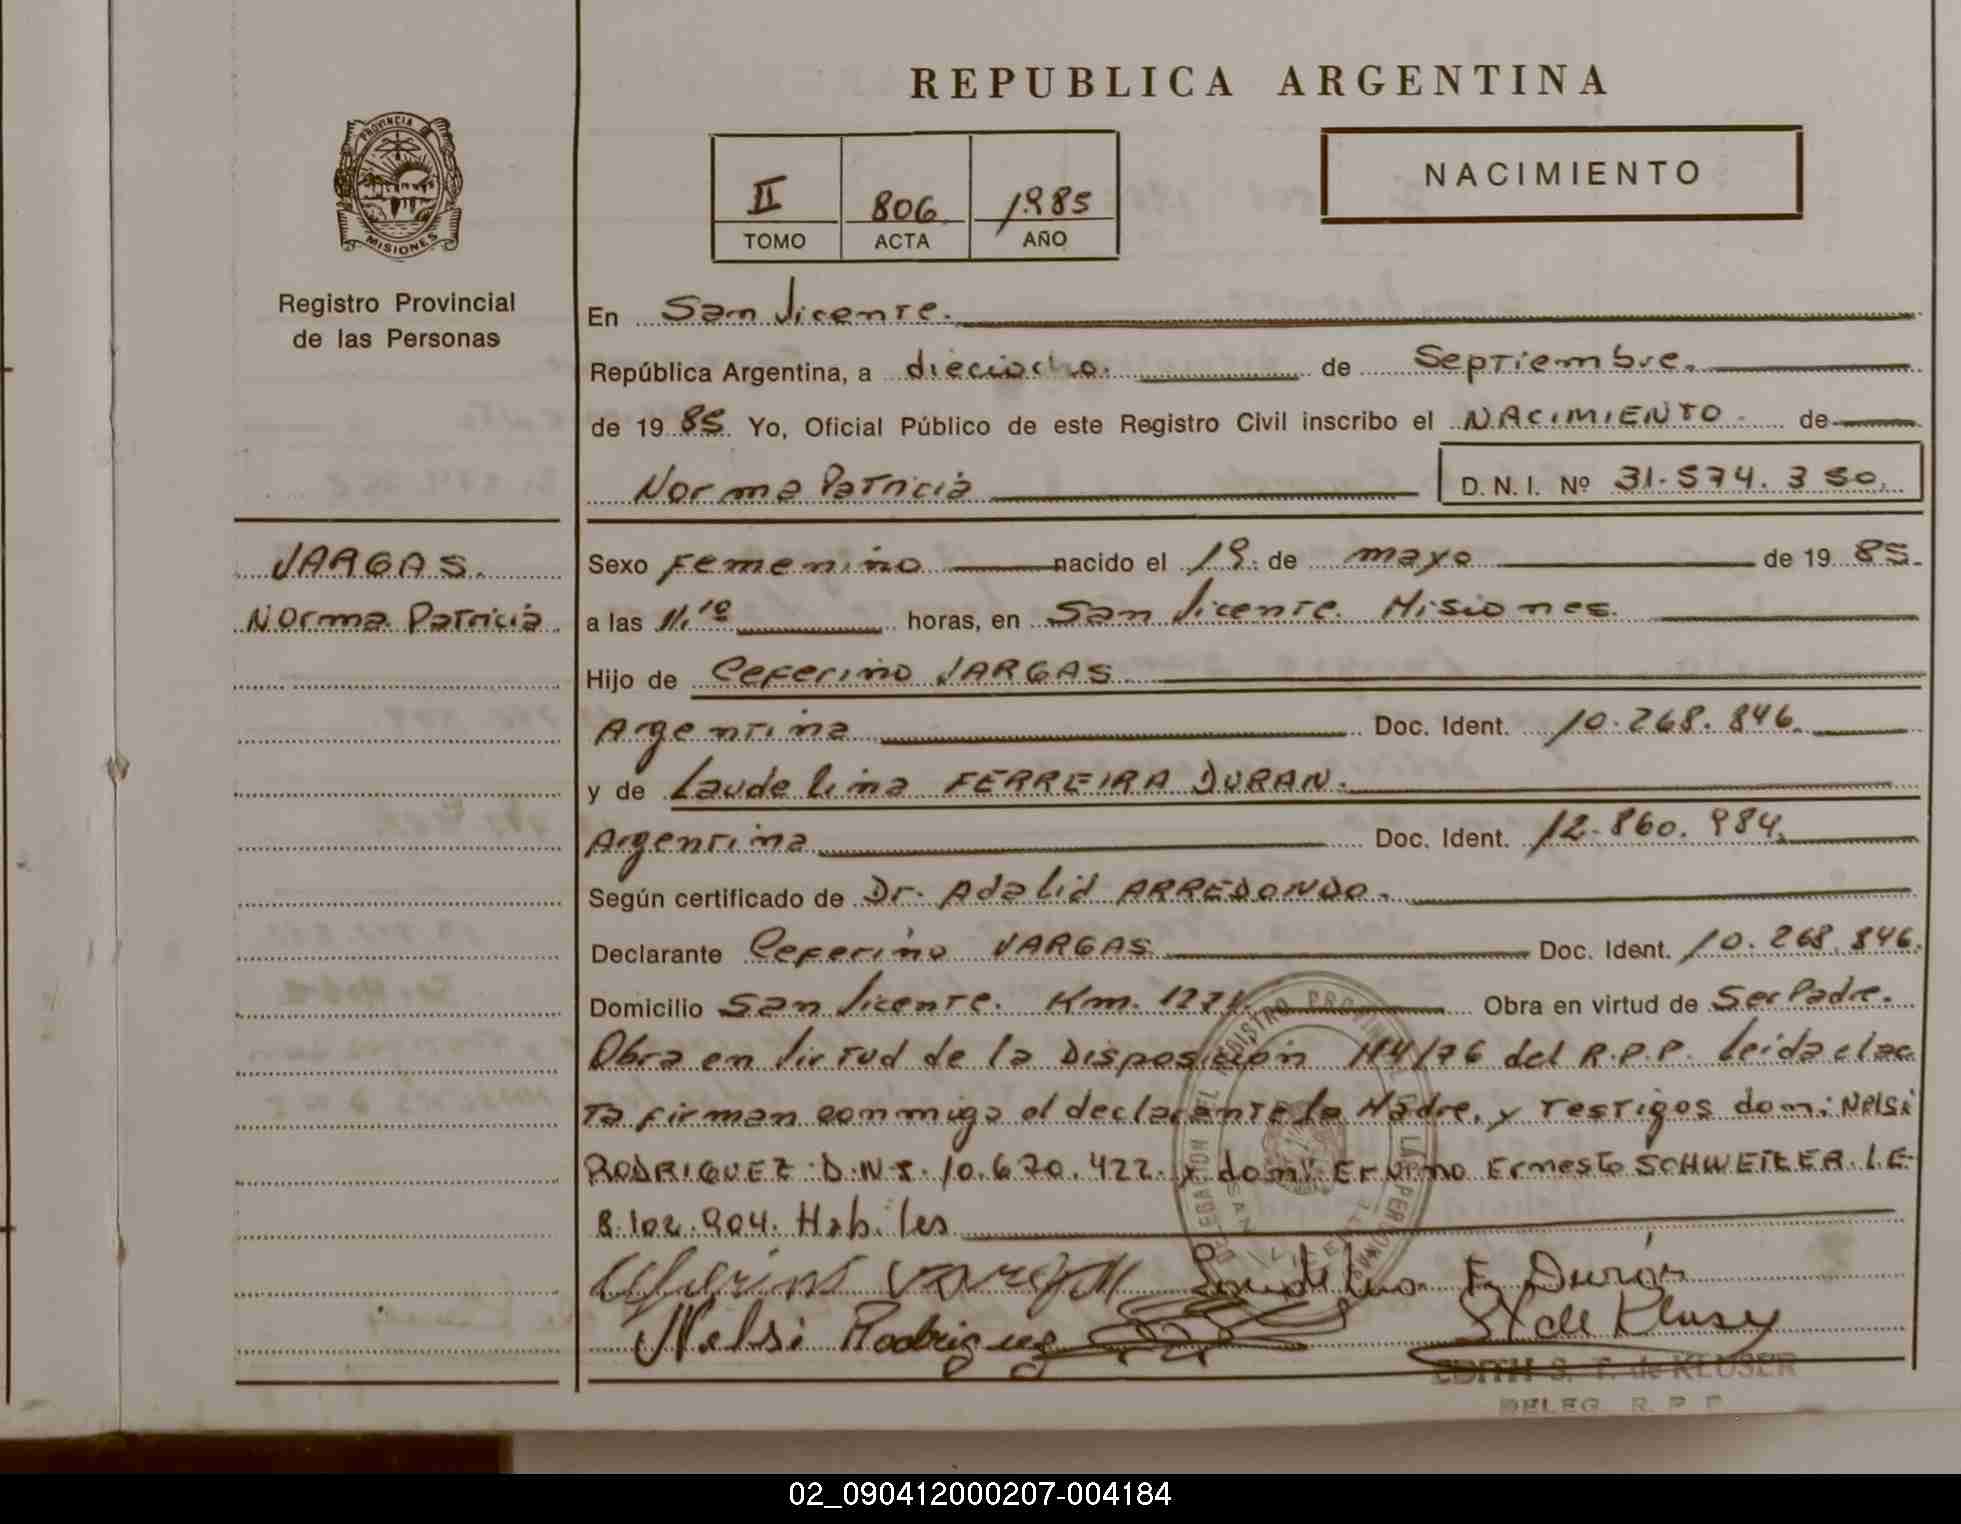 REPUBLICA ARGENTINA
PROVINCIA DE
MISIONES
Registro Provincial
de las Personas
II 806 1985
TOMO ACTA AÑO
NACIMIENTO
En San Vicente.
República Argentina, a dieciocho. de Septiembre.
de 19 85 Yo, Oficial Público de este Registro Civil inscribo el NACIMIENTO de
Norma Patricia D. N. I. Nº 31.574.350.
VARGAS.
Norma Patricia
Sexo Femenino nacido el 19. de mayo de 19 85.
a las 11,10 horas, en San Vicente. Misiones.
Hijo de Ceferino VARGAS
Argentina Doc. Ident. 10.268.846.
y de Laudelina FERREIRA DURAN.
Argentina Doc. Ident. 12.860.984.
Según certificado de Dr. Adalid ARREDONDO.
Declarante Ceferino VARGAS Doc. Ident. 10.268.846.
Domicilio San Vicente. Km. 1271. Obra en virtud de Ser Padre.
Obra en Virtud de la Disposición 114/76 del R.P.P. leida el ac
ta firman conmigo el declarante la Madre, y testigos don: Nelsi
RODRIGUEZ D.N.I. 10.670.422. y don: Ervino Ernesto SCHWEIZER L.E.
8.102.904. Habiles
Ceferino Vargas Laudelina F. Durán
Nelsi Rodriguez
EDITH S. T. de KLUSER
DELEG. R. P. P.
02_090412000207-004184